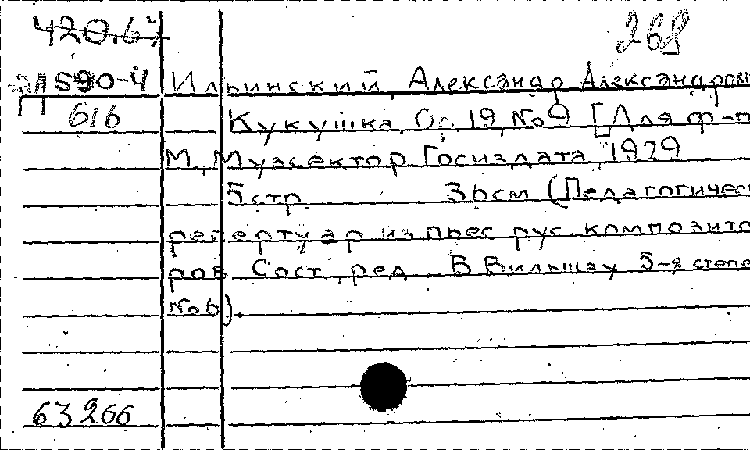 420.67
268
S90-4 Ильинский, Александр Александров
П 616 Кукушка. Ос. 19, No 9 [Для ф-п
М., Музсектор Госиздата, 1929
5стр. 36см (Педагогичес
репертуар из пьес рус. композито
ров. Сост., ред. В. Вильшау 5-я степе
No 6).
63266